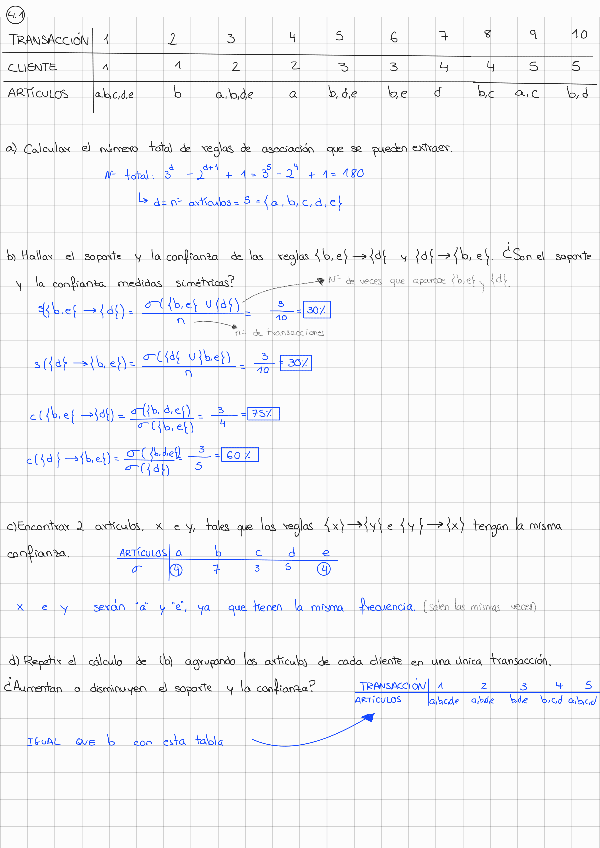 4.1
TRANSACCIÓN 1 2 3 4 5 6 7 8 9 10
CLIENTE 1 1 2 2 3 3 4 4 5 5
ARTÍCULOS a,b,c,d,e b a,b,d,e a b,d,e b,e d b,c a,c b,d
a) Calcular el número total de reglas de asociación que se pueden extraer.
Nº total: 3^d - 2^(d+1) + 1 = 3^5 - 2^4 + 1 = 180
↳ d = nº artículos = 5 = {a, b, c, d, e}
b) Hallar el soporte y la confianza de las reglas {b,e} → {d} y {d} → {b,e}. ¿Son el soporte
y la confianza medidas simétricas?
Nº de veces que aparece {b,e} y {d}
s({b,e} → {d}) = σ({b,e} ∪ {d}) / n = 3/10 = 30%
nº de transacciones
s({d} → {b,e}) = σ({d} ∪ {b,e}) / n = 3/10 = 30%
c({b,e} → {d}) = σ({b,d,e}) / σ({b,e}) = 3/4 = 75%
c({d} → {b,e}) = σ({b,d,e}) / σ({d}) = 3/5 = 60%
c) Encontrar 2 artículos, x e y, tales que las reglas {x} → {y} e {y} → {x} tengan la misma
confianza.
ARTÍCULOS a b c d e
σ 4 7 3 5 4
x e y serán "a" y "e", ya que tienen la misma frecuencia. (salen las mismas veces)
d) Repetir el cálculo de (b) agrupando los artículos de cada cliente en una única transacción.
¿Aumentan o disminuyen el soporte y la confianza?
TRANSACCIÓN 1 2 3 4 5
ARTÍCULOS a,b,c,d,e a,b,d,e b,d,e b,c,d a,b,c,d
IGUAL QUE b con esta tabla